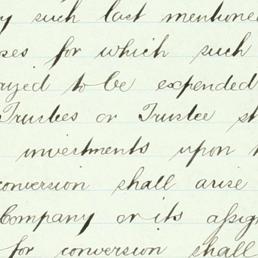 such last mentioned
for which such
to be expended
Trustees or Trustee
investments upon
conversion shall arise
Company or its
for conversion shall